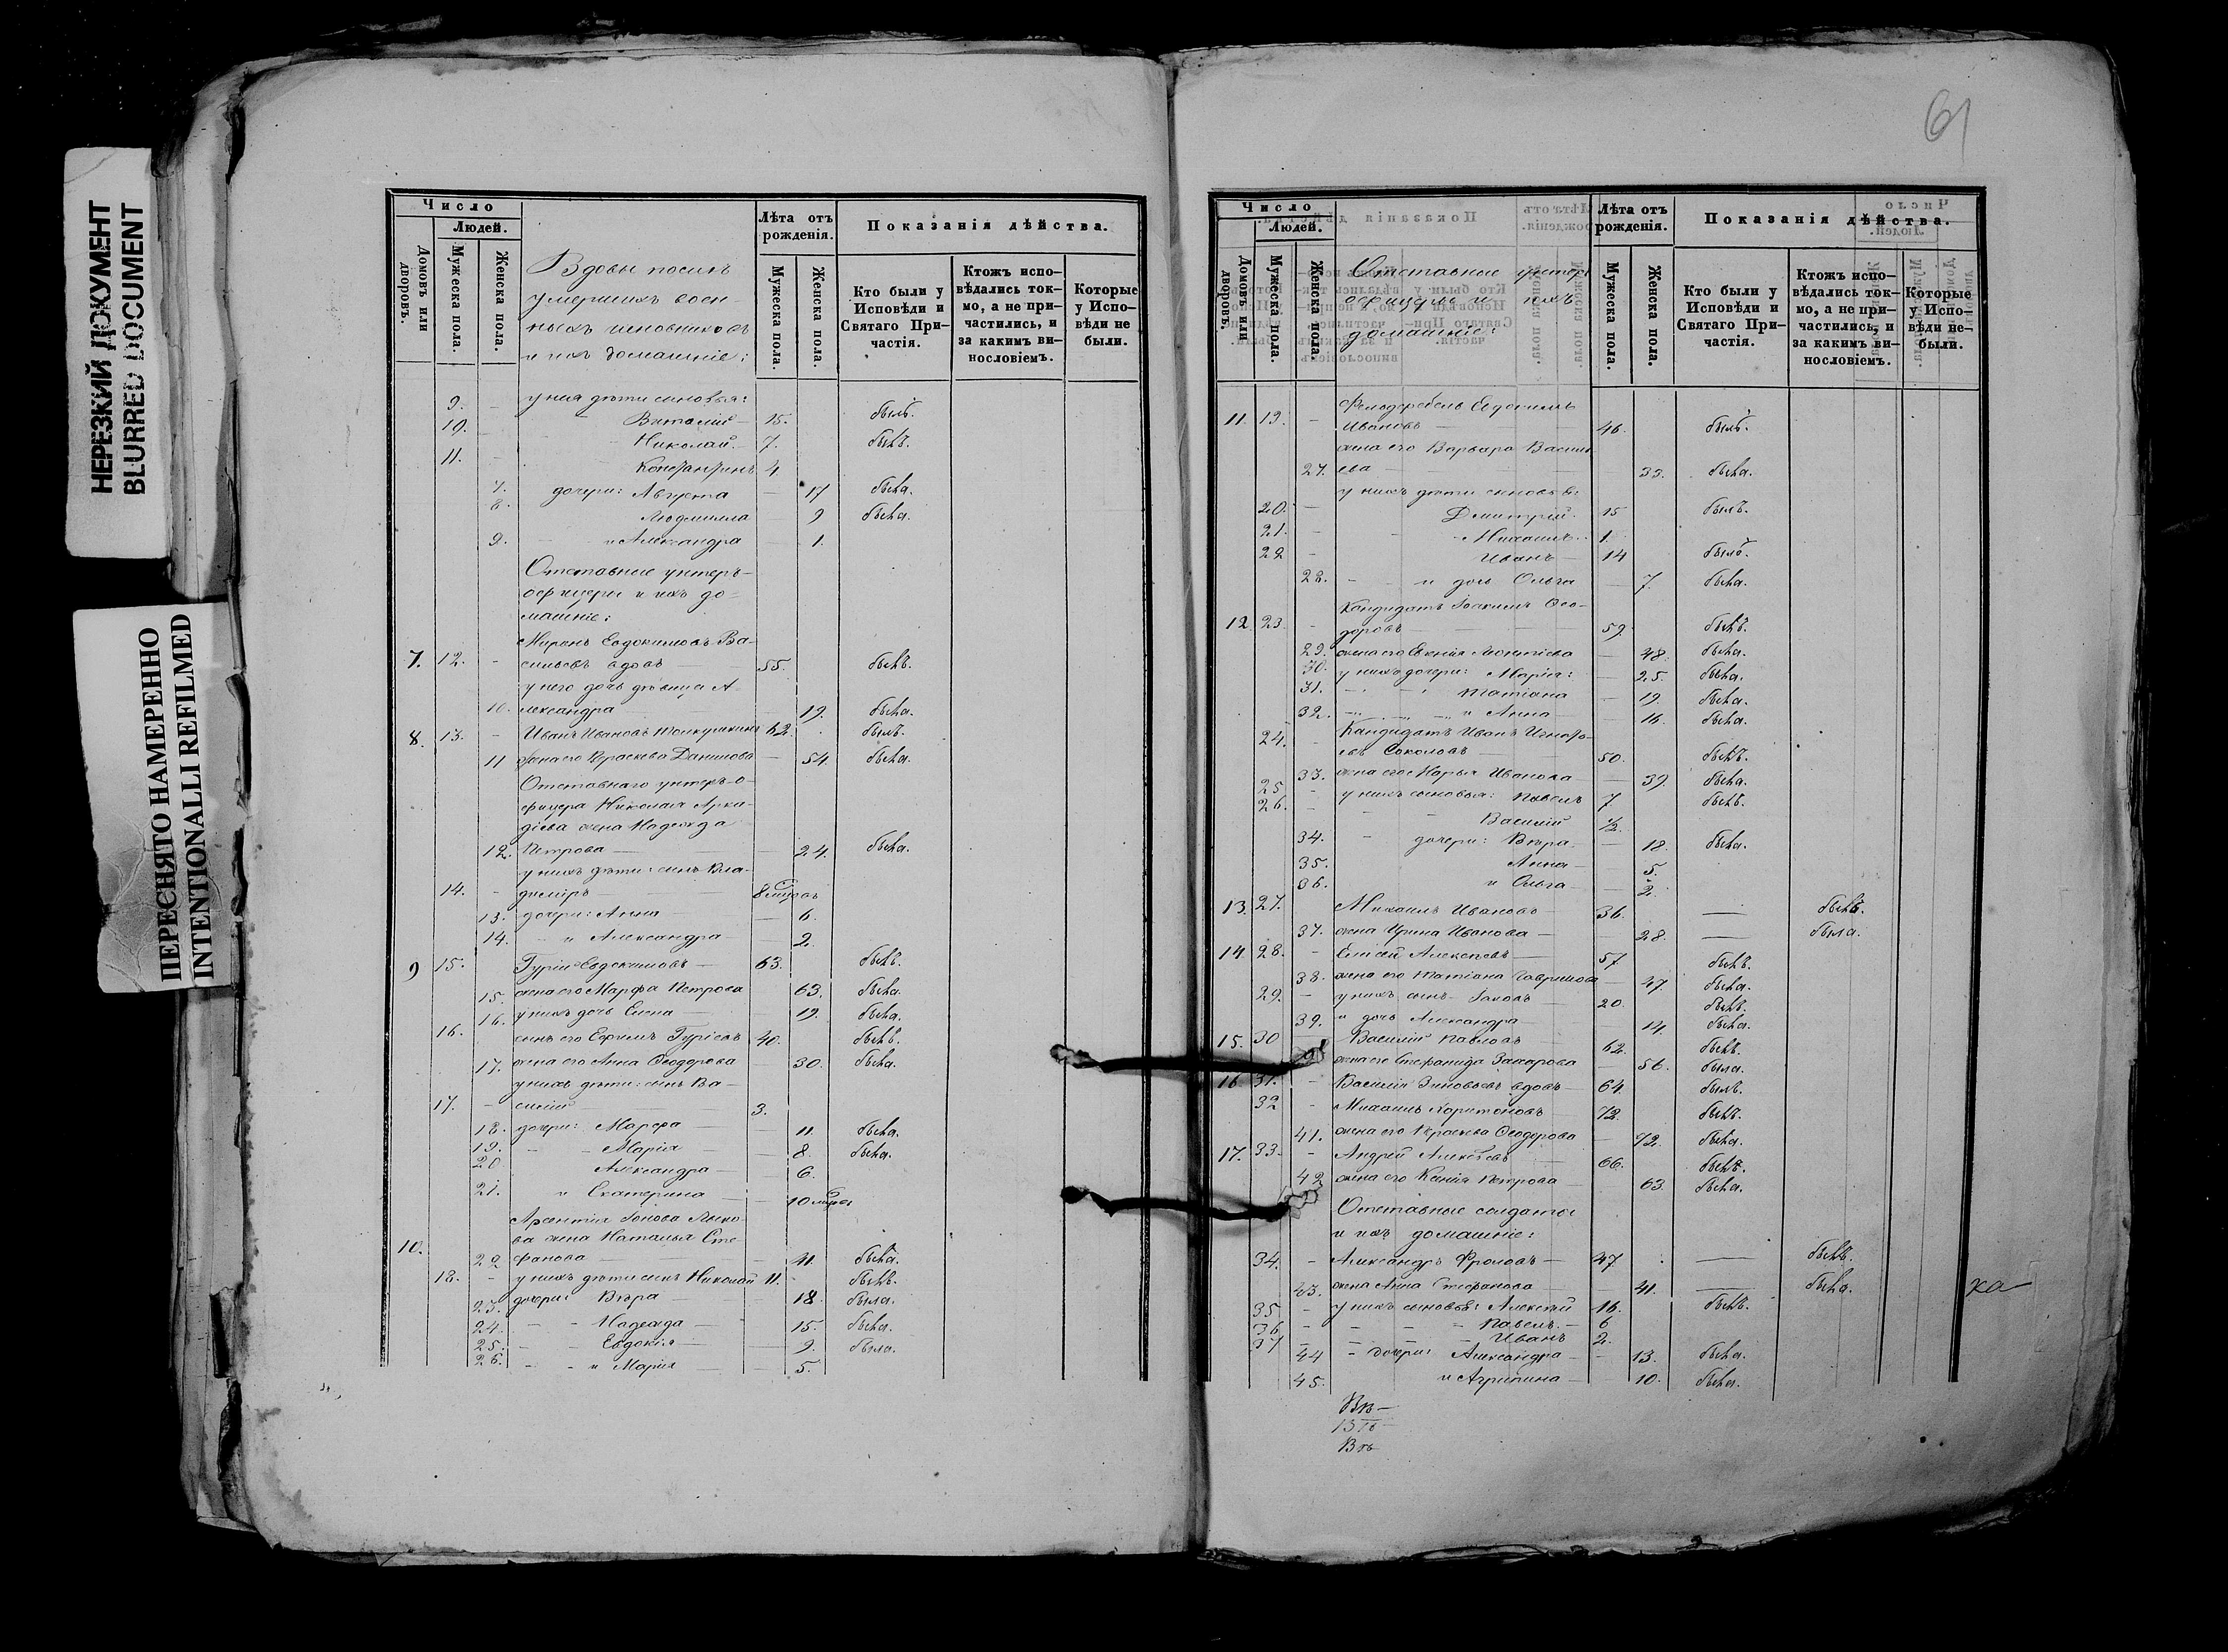 НЕРЕЗКИЙ ДОКУМЕНТ
BLURRED DOCUMENT
ПЕРЕСНЯТО НАМЕРЕННО
INTENTIONALLI REFILMED
Число
Людей.
Домовъ или дворовъ.
Мужеска пола.
Женска пола.
Вдовы послѣ
умершихъ воен-
ныхъ чиновниковъ
и ихъ домашніе:
Лѣта отъ рожденія.
Мужеска пола.
Женска пола.
Показанія дѣйства.
Кто были у Исповѣди и Святаго При-частія.
Ктожъ испо-вѣдались ток-мо, а не при-частились, и за какимъ ви-нословіемъ.
Которые у Испо-вѣди не были.
у нея дѣти сыновья:
9. - Виталій - 15. былъ.
10. - Николай - 7. былъ.
11. - Константинъ 4.
7. дочери: Августа - 17 была.
8. Людмилла 9 была.
9. - и Александра - 1.
Отставные унтеръ-
офицеры и ихъ до-
машніе:
Миронъ Евдокимовъ Ва-
7. 12. - сильевъ вдовъ - 55. былъ.
у него дочь дѣвица А-
10. лександра - 19. была.
8. 13. - Иванъ Ивановъ 62. былъ.
11 жена его Праскева Данилова - 54. была.
Отставнаго унтеръ-о-
фицера Николая Арка-
діева жена Надежда
12. Петрова - 24. была.
у нихъ дѣти: сынъ Вла-
14. - димиръ 8 мѣсяцовъ
13. дочери: Анна - 6.
14. - и Александра - 2.
9 15. Гурій Евдокимовъ - 63. былъ.
15. жена его Марфа Петрова 63. была.
16. у нихъ дочь Елена - 19. была.
16. сынъ его Ефимъ Гуріевъ 40. былъ.
17. жена его Анна Ѳеодорова 30. была.
у нихъ дѣти: сынъ Ва-
17. - силій - 3.
18. дочери: Марфа - 11. была.
19. - - Марія - 8. была.
20 Александра - 6.
21. и Екатерина - 10 мѣсяц
Арсентія Іонова
ва жена Наталья Сте-
10. 22 фанова - 41. была.
18. - у нихъ дѣти сынъ Николай 11. - былъ.
23. дочери: Вѣра - 18. была.
24. - - Надежда - 15. была.
25. - - Евдокія - 9. была.
26. - - и Марія - 5.
61
Число
Людей.
Домовъ или дворовъ.
Мужеска пола.
Женска пола.
Отставные унтеръ
офицеры и ихъ
домашніе:
Лѣта отъ рожденія.
Мужеска пола.
Женска пола.
Показанія дѣйства.
Кто были у Исповѣди и Святаго При-частія.
Ктожъ испо-вѣдались ток-мо, а не при-частились, и за какимъ ви-нословіемъ.
Которые у Испо-вѣди не-были.
Фельдфебель Евдокимъ
11. 19. - Ивановъ - 46. былъ.
жена его Варвара Василь
27. ева - 33. была.
у нихъ дѣти сыновья:
20. - Дмитрій 15 былъ.
21. - Михаилъ 1.
22 - Иванъ - 14 былъ.
28. - - и дочь Ольга - 7. была.
Кандидатъ Іоакимъ Ѳео-
12 23. - доровъ - 59. былъ.
29. жена его Евгенія Леонтіева - 48. была.
30. у нихъ дочери: Марія: - 25. была.
31. - - Татіана - 19. была.
32. - - и Анна - 16. была.
Кандидатъ Иванъ Игнать-
24. - евъ Соколовъ - 50. былъ.
33. жена его Марья Иванова - 39. была.
25 - у нихъ сыновья: Павелъ 7. былъ.
26. - Василій 1/2.
34. - дочери: Вѣра - 18. была.
35. Анна - 5.
36. и Ольга - 2.
13. 27. Михаилъ Ивановъ - 36. — былъ.
37. жена Ирина Иванова - 28. — была.
14 28. - Елисей Алексѣевъ - 57. былъ.
38. жена его Татіана Гаврилова - 47. была.
29. - у нихъ сынъ Іаковъ - 20. былъ.
39. и дочь Александра - 14. была.
15. 30 Василій Павловъ 62. былъ.
жена его Стефанида Захарова - 56. была.
16 31. - Василій Зиновьевъ вдовъ - 64. былъ.
32 - Михаилъ Харитоновъ 72. былъ.
41. жена его Праскева Ѳеодорова - 72. была.
17. 33. - Андрей Алексѣевъ 66. былъ.
42 жена его Ксенія Петрова - 63. была.
Отставные солдаты
и ихъ домашніе:
34. - Александръ Фроловъ - 47 — былъ.
43. жена Анна Стефанова - 41. — была.
ка
35 - у нихъ сыновья: Алексѣй 16. былъ.
36 - - - Павелъ - 6
37 - - - Иванъ 2.
44 - дочери: Александра - 13. была.
45. и Агрипина - 10. была.